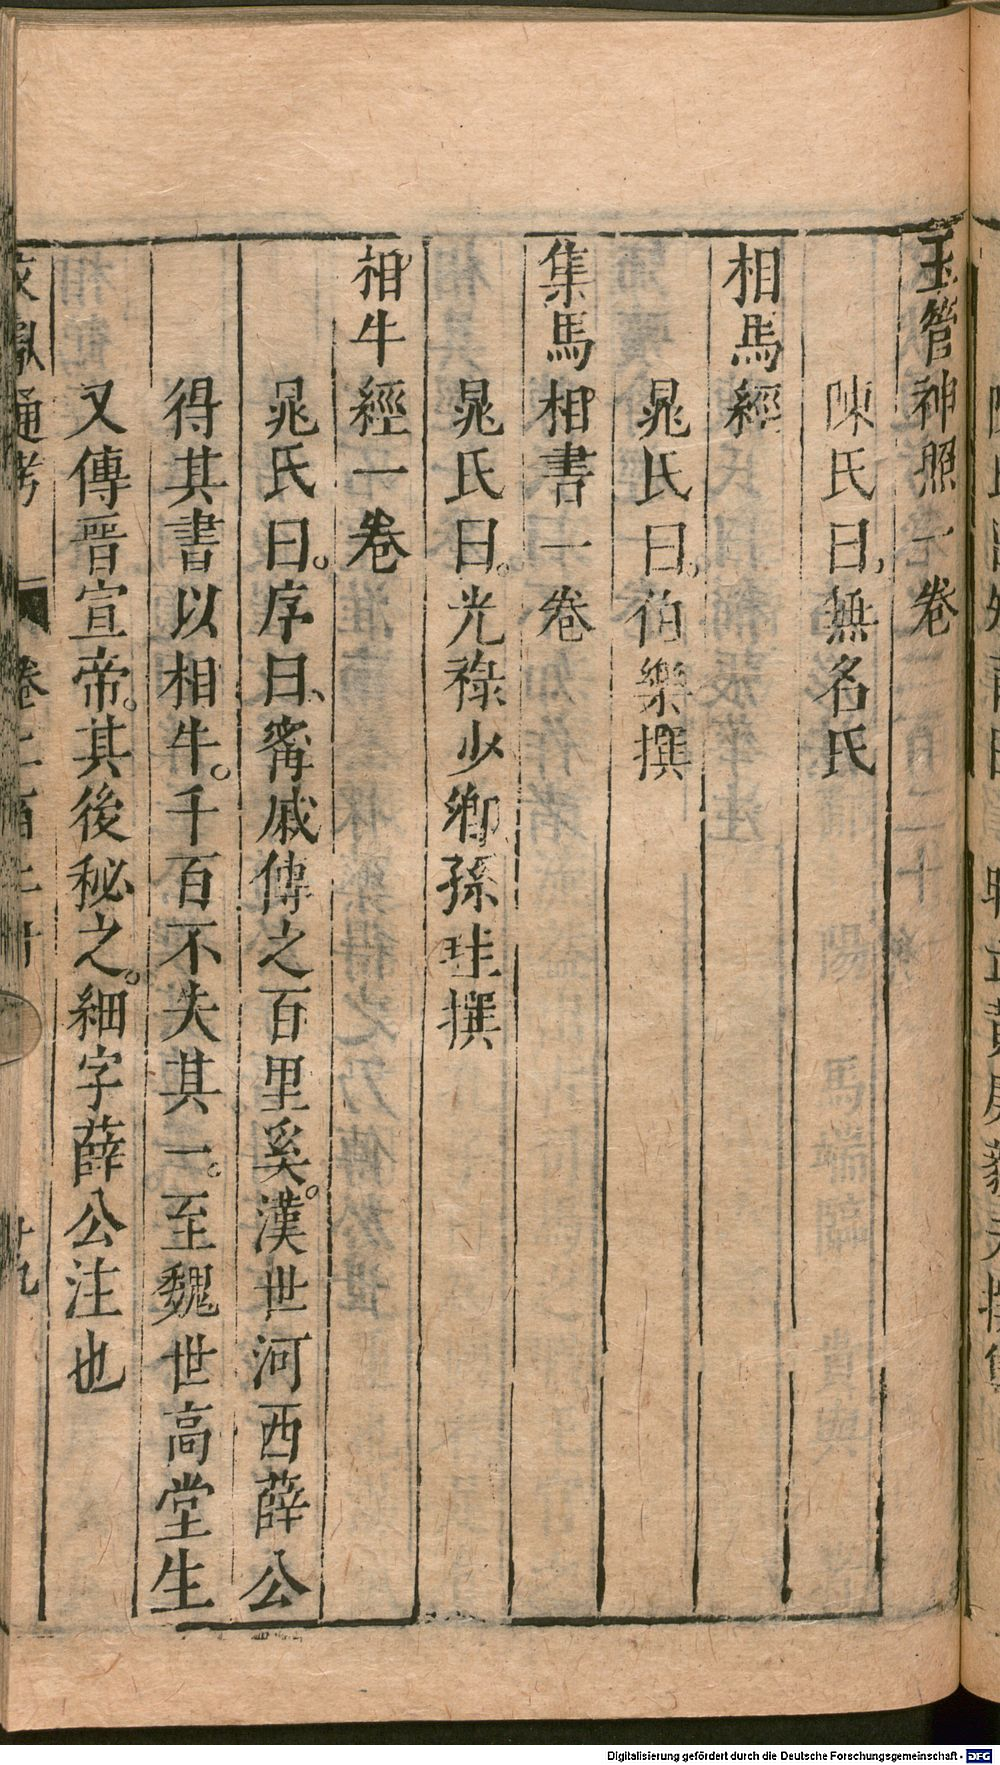 玉管神照一卷
陳氏曰無名氏
相馬經
晁氏曰伯樂撰
集馬相書一卷
晁氏曰。光祿少卿孫珪撰
相牛經一卷
晁氏曰。序曰、甯戚傳之百里奚。漢世河西薛公
得其書以相牛。千百不失其一。至魏世高堂生
又傳晉宣帝。其後秘之。細字薛公注也
通考 卷二百二十 十九
Digitalisierung gefördert durch die Deutsche Forschungsgemeinschaft - DFG